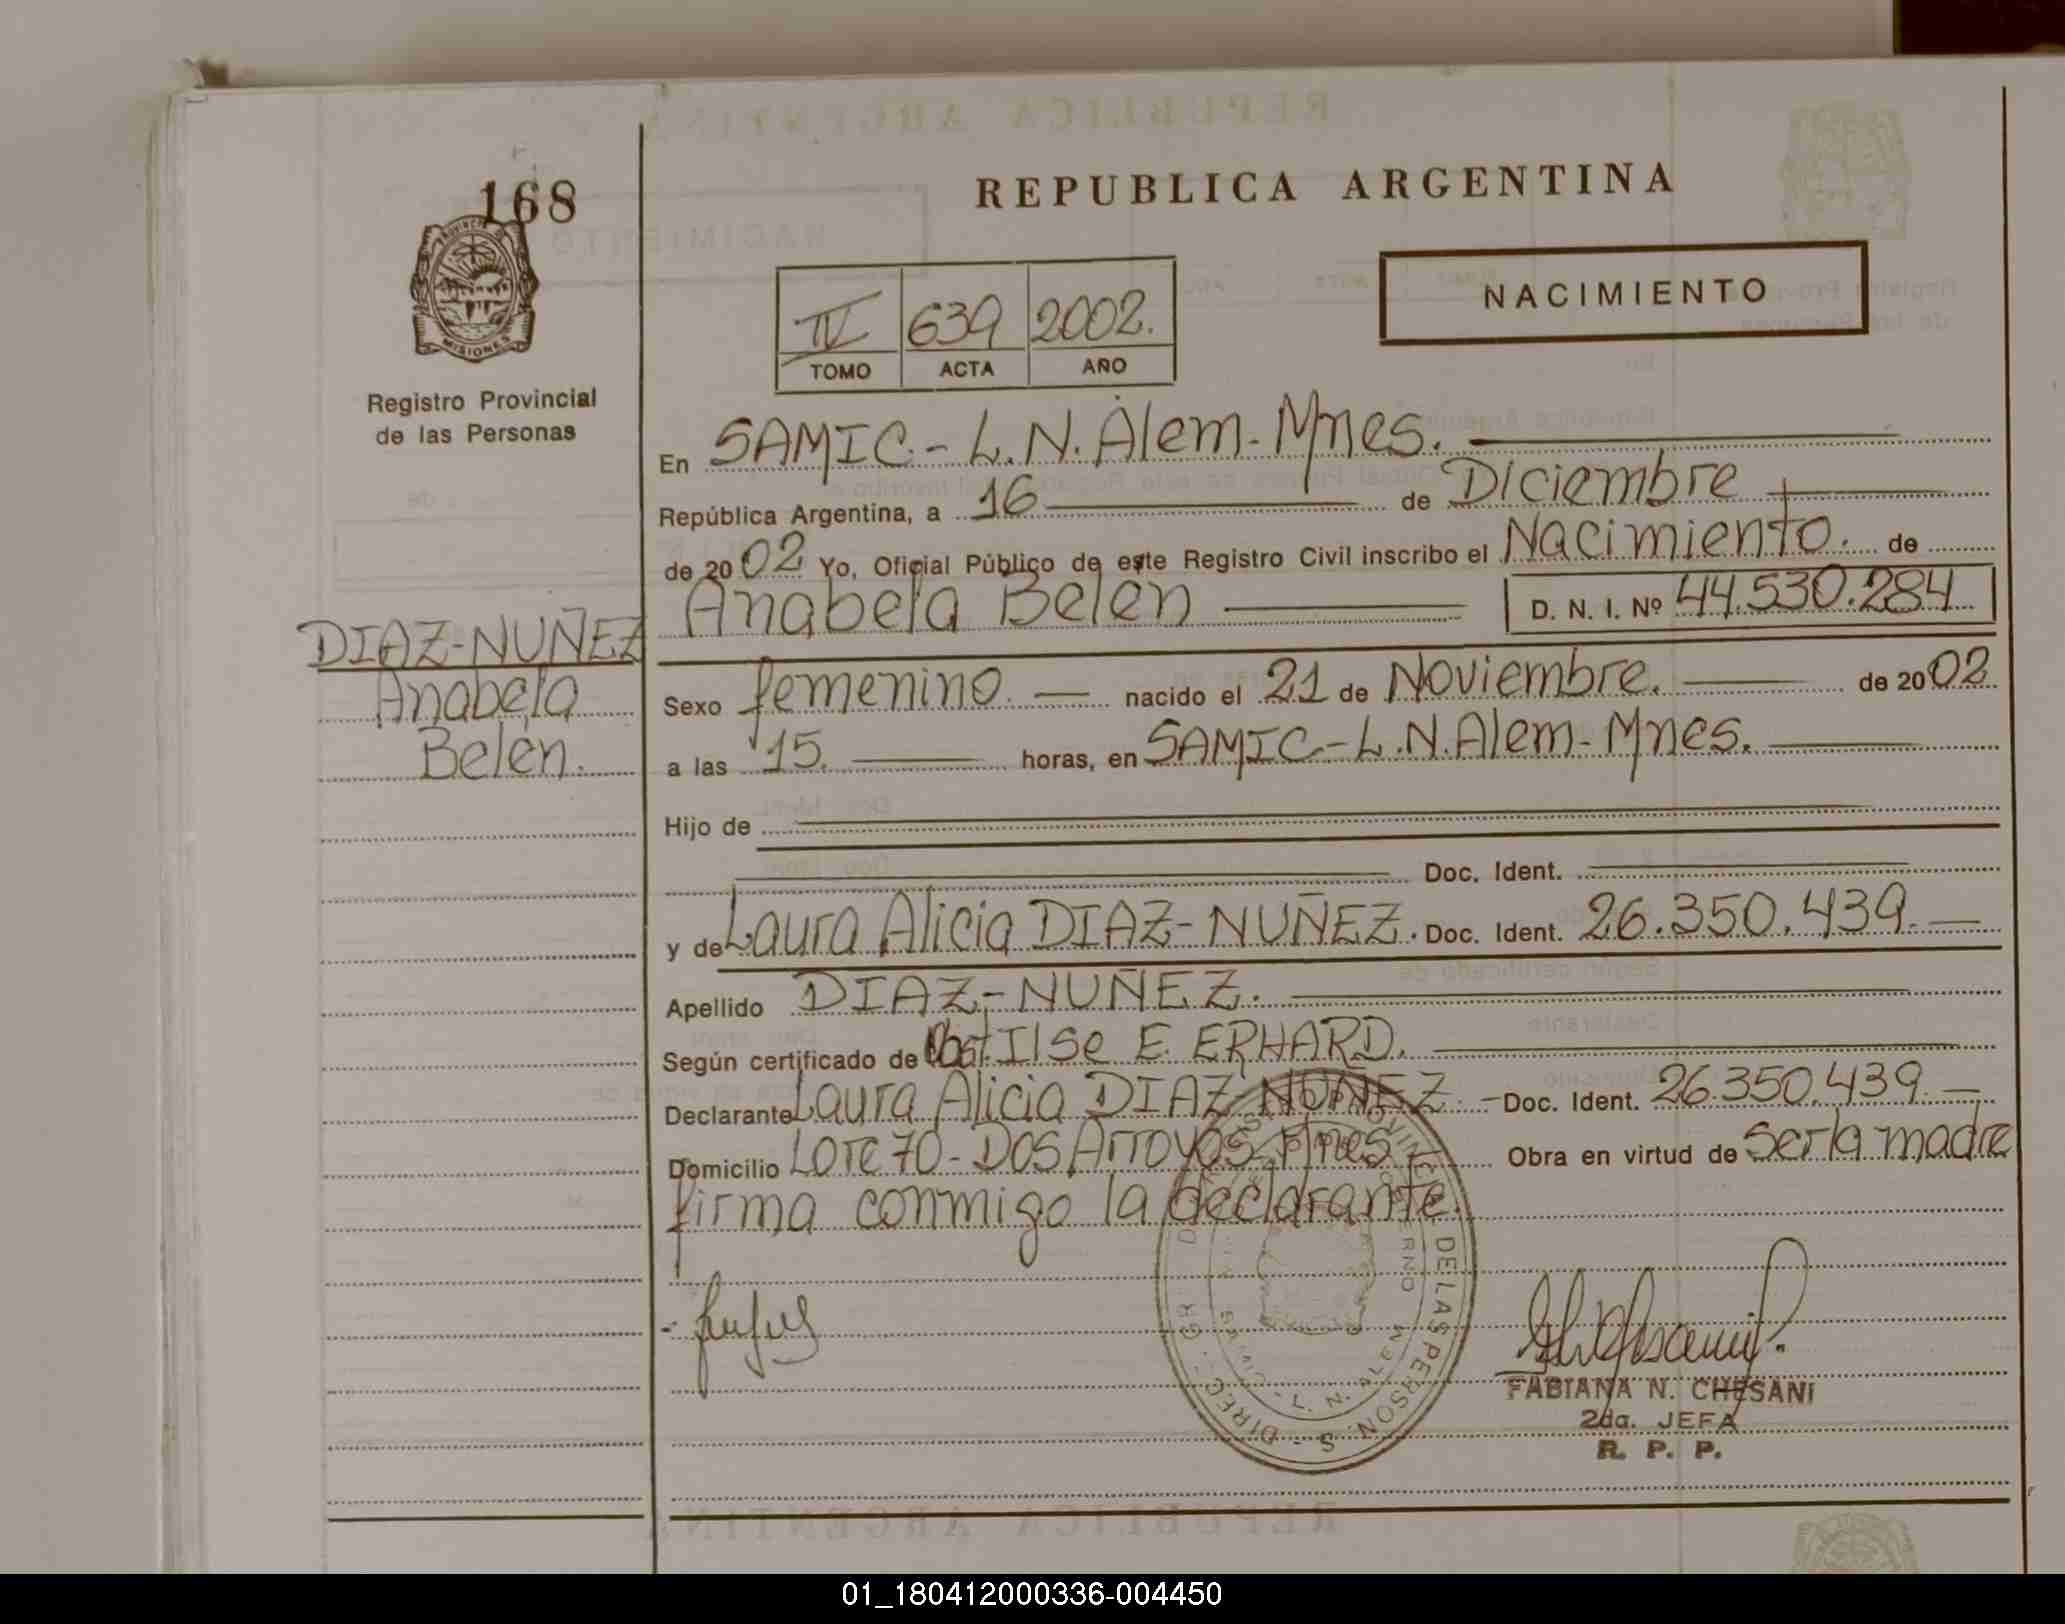 REPUBLICA ARGENTINA
168
PROVINCIA DE
MISIONES
Registro Provincial
de las Personas
NACIMIENTO
IV 639 2002.
TOMO ACTA AÑO
En SAMIC.- L.N. Alem-Mnes.
República Argentina, a 16 de Diciembre
de 2002 Yo, Oficial Público de este Registro Civil inscribo el Nacimiento. de
Anabela Belén D. N. I. Nº 44.530.284
DIAZ-NUÑEZ
Anabela
Belén.
Sexo femenino. nacido el 21 de Noviembre. de 2002
a las 15. horas, en SAMIC-L.N.Alem-Mnes.
Hijo de
Doc. Ident.
y de Laura Alicia DIAZ-NUÑEZ. Doc. Ident. 26.350.439.
Apellido DIAZ-NUÑEZ.
Según certificado de Obst. Ilse E. ERHARD.
Declarante Laura Alicia DIAZ NUÑEZ - Doc. Ident. 26.350.439.
Domicilio LOTE 70 - DOS Arroyos, Mnes Obra en virtud de ser la madre
firma conmigo la declarante.
DE LAS PERSON.
L. N. ALEM
FABIANA N. CHESANI
2da. JEFA
R. P. P.
01_180412000336-004450